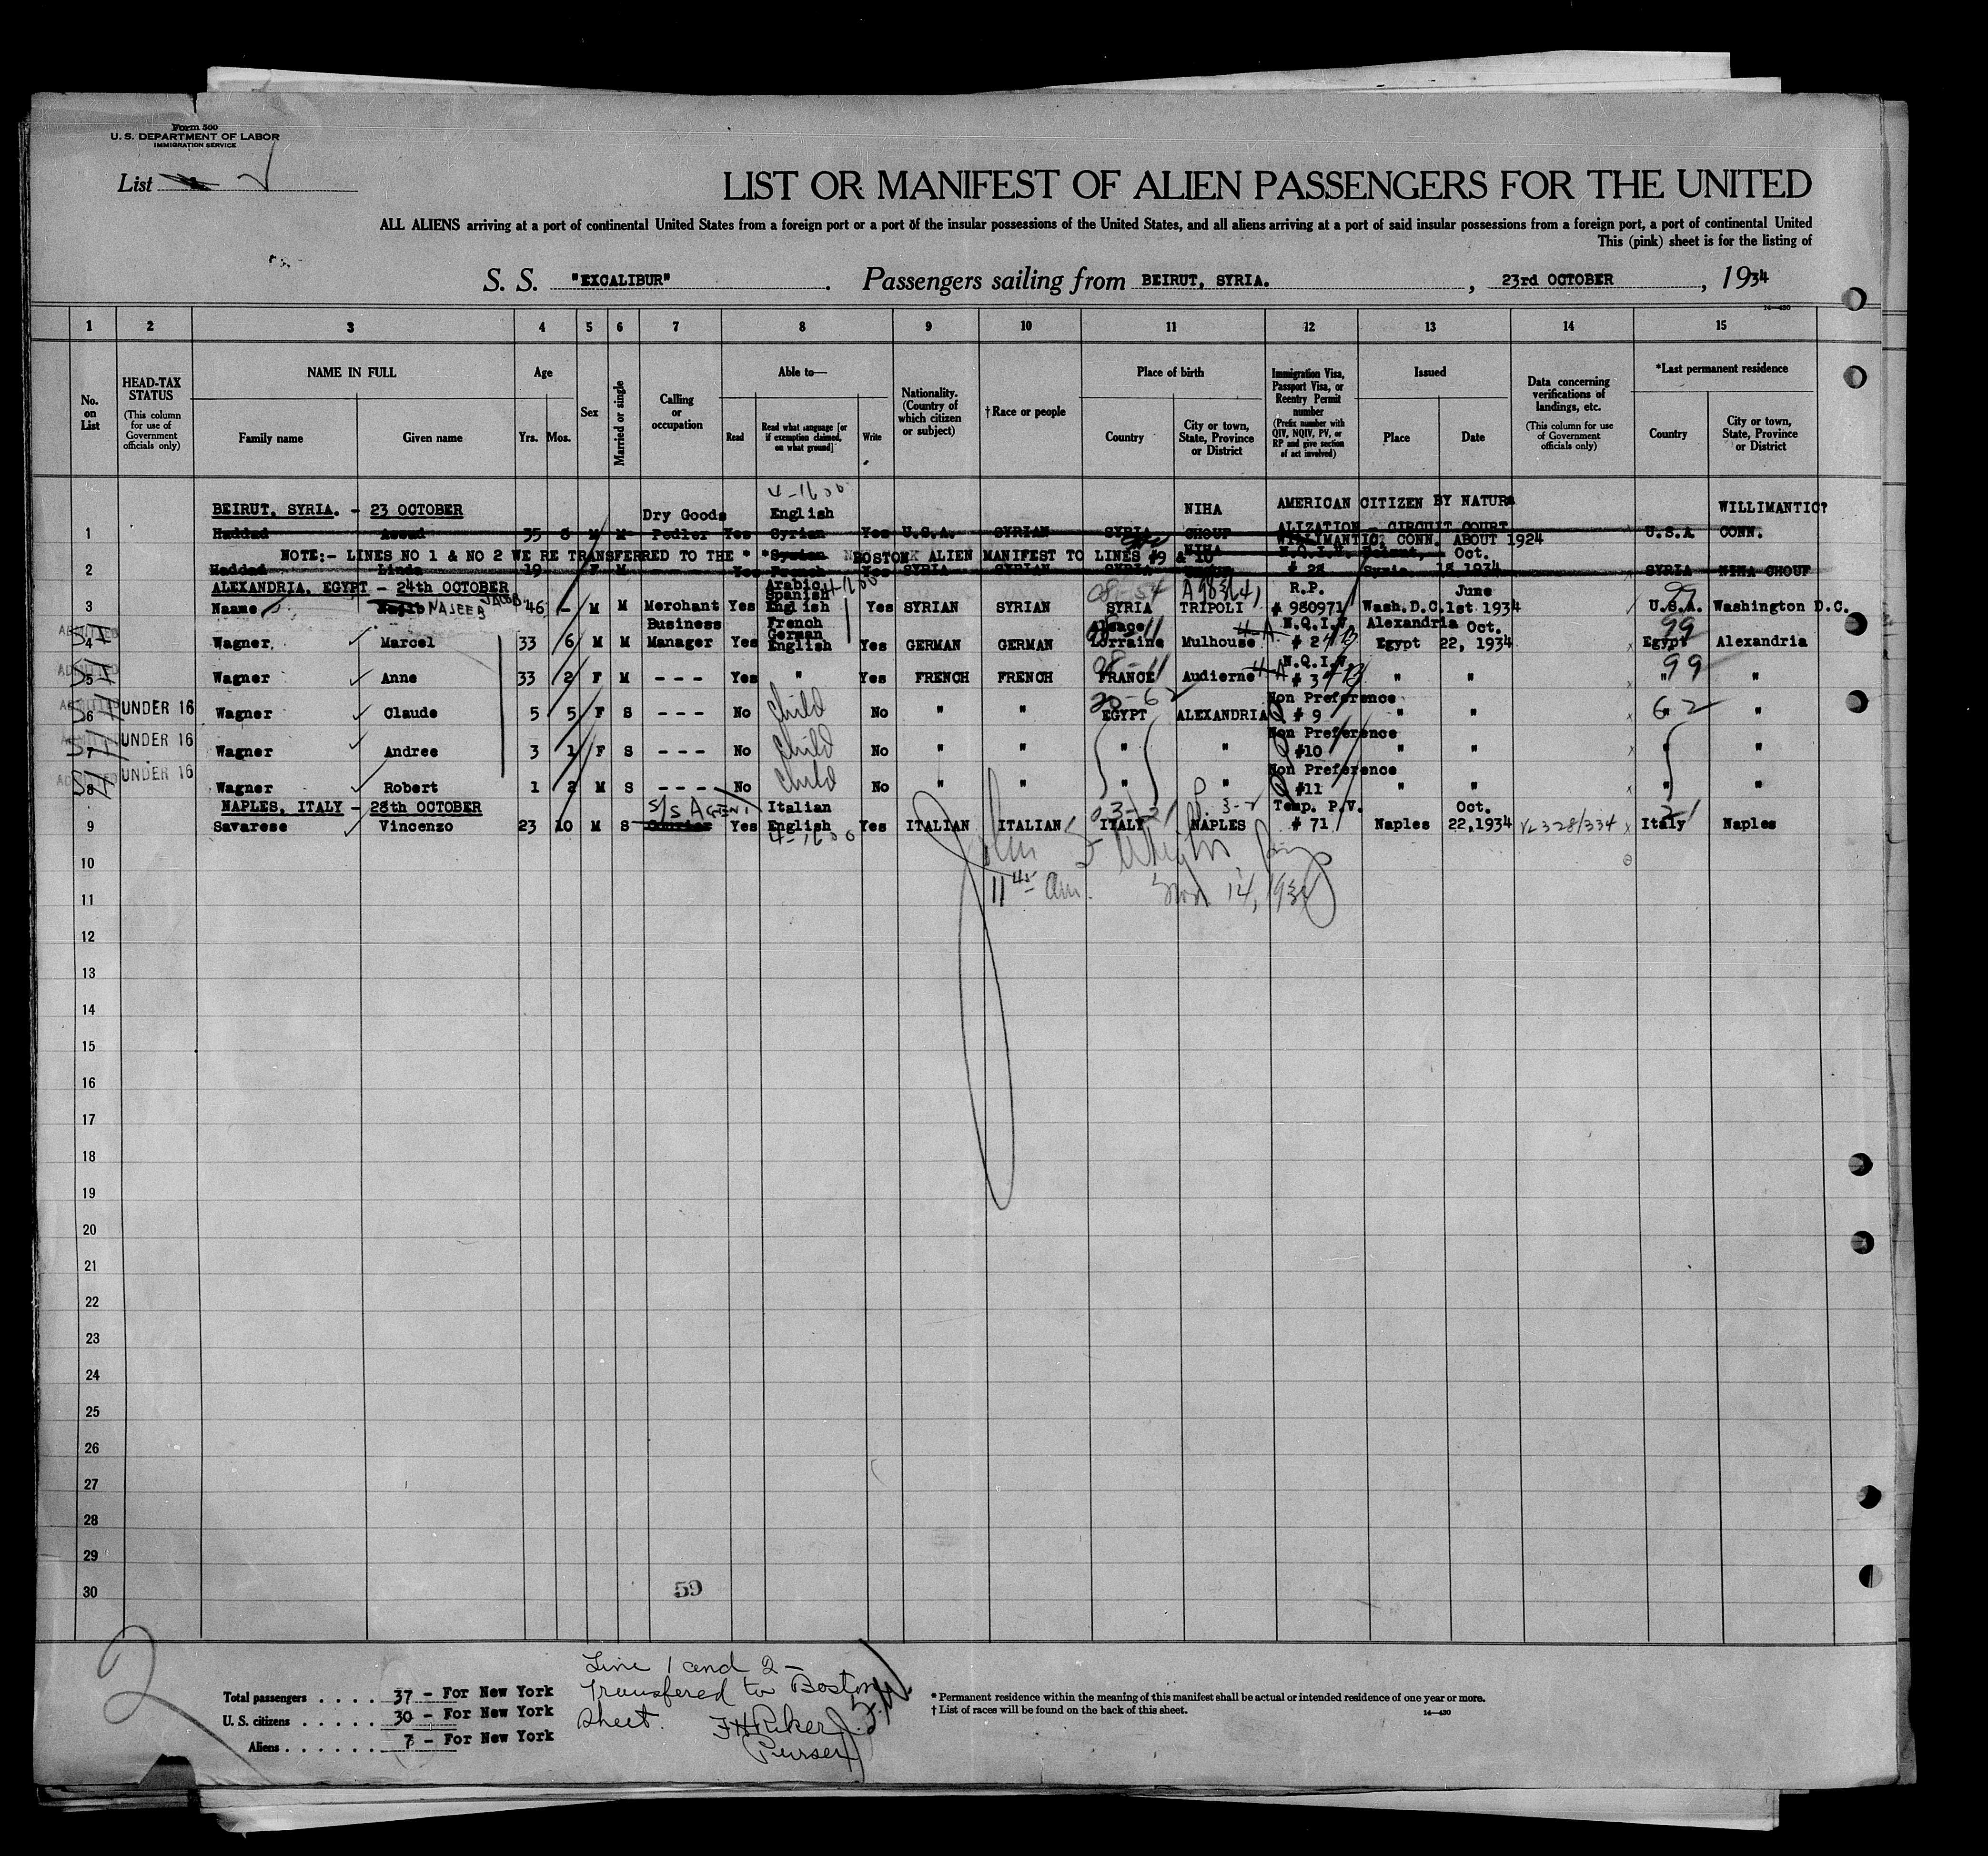 Form 500
U. S. DEPARTMENT OF LABOR
IMMIGRATION SERVICE
List
LIST OR MANIFEST OF ALIEN PASSENGERS FOR THE UNITED
ALL ALIENS arriving at a port of continental United States from a foreign port or a port of the insular possessions of the United States, and all aliens arriving at a port of said insular possessions from a foreign port, a port of continental United
This (pink) sheet is for the listing of
S. S. "EXCALIBUR" . Passengers sailing from BEIRUT, SYRIA. , 23rd OCTOBER , 1934
14—430
1 2 3 4 5 6 7 8 9 10 11 12 13 14 15
No. on List
HEAD-TAX STATUS (This column for use of Government officials only)
NAME IN FULL
Family name Given name
Age
Yrs. Mos.
Sex
Married or single
Calling or occupation
Able to—
Read
Read what language [or if exemption claimed, on what ground]
Write
Nationality. (Country of which citizen or subject)
† Race or people
Place of birth
Country
City or town, State, Province or District
Immigration Visa, Passport Visa, or Reentry Permit number (Prefix number with QIV, NQIV, PV, or RP and give section of act involved)
Issued
Place Date
Data concerning verifications of landings, etc. (This column for use of Government officials only)
*Last permanent residence
Country
City or town, State, Province or District
4-1600
BEIRUT, SYRIA. - 23 OCTOBER Dry Goods English NIHA AMERICAN CITIZEN BY NATURA WILLIMANTIC?
1 Haddad Assad 35 8 M M Pedler Yes Syrian Yes U.S.A. SYRIAN SYRIA CHOUF ALIZATION - CIRCUIT COURT U.S.A CONN.
WILLIMANTIC, CONN. ABOUT 1924
NOTE:- LINES NO 1 & NO 2 WE RE TRANSFERRED TO THE * *Syrian BOSTON ALIEN MANIFEST TO LINES #9 & 10 NIHA N.Q.I.V. Beirut, Oct.
2 Haddad Linda 19 F M Yes French Yes SYRIA SYRIAN SYRIA # 28 Syria. 18 1934 SYRIA NIHA CHOUF
ALEXANDRIA, EGYPT - 24th OCTOBER Arabic Spanish 08-54 A983641 R.P. June 99
3 Naame NAJEEB 46 - M M Merchant Yes English Yes SYRIAN SYRIAN SYRIA TRIPOLI # 980971 Wash.D.C. 1st 1934 U.S.A. Washington D.C.
Business French German Alsace N.Q.I.V. Alexandria Oct. 99
4 Wagner Marcel 33 6 M M Manager Yes English Yes GERMAN GERMAN Lorraine Mulhouse # 2 Egypt 22, 1934 Egypt Alexandria
08-11 N.Q.I.V. 99
5 Wagner Anne 33 2 F M - - - Yes " Yes FRENCH FRENCH FRANCE Audierne # 3 " " " "
20-62 Non Preference 62
6 UNDER 16 Wagner Claude 5 5 F S - - - No Child No " " EGYPT ALEXANDRIA # 9 " " " "
Non Preference
7 UNDER 16 Wagner Andree 3 1 F S - - - No Child No " " " " #10 " " " "
Non Preference
8 UNDER 16 Wagner Robert 1 2 M S - - - No Child No " " " " #11 " " " "
NAPLES, ITALY - 28th OCTOBER S/S AGENT Italian 03-21 Temp. P.V. Oct. 21
9 Savarese Vincenzo 23 10 M S Yes English Yes ITALIAN ITALIAN ITALY NAPLES # 71 Naples 22,1934 Italy Naples
4-1600
10
11 11 45 am. Nov 14, 1934
12
13
14
15
16
17
18
19
20
21
22
23
24
25
26
27
28
29
30
59
2
Total passengers . . . . 37 - For New York
U. S. citizens . . . . . 30 - For New York
Aliens . . . . . . 7 - For New York
Line 1 and 2 -
Transfered to Boston
Sheet.
Purser
* Permanent residence within the meaning of this manifest shall be actual or intended residence of one year or more.
† List of races will be found on the back of this sheet.
14—430